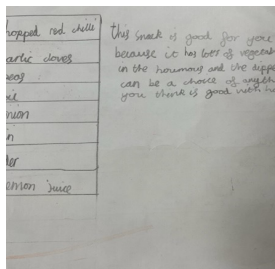 hopped red chilli
garlic cloves
peas
oil
mon
in
der
emon juice
this snack is good for you
because it has lots of vegetab
in the houmous and the dippe
can be a choice of anyth
you think is good with h